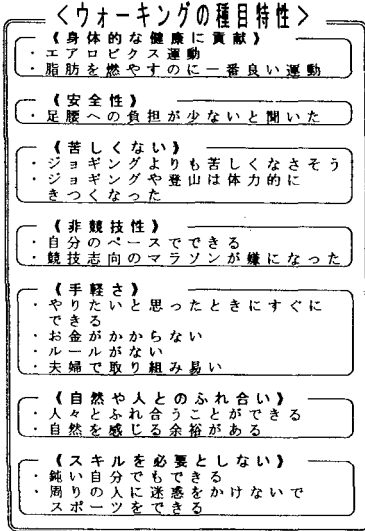 ＜ウォーキングの種目特性＞
《身体的な健康に貢献》
・エアロビクス運動
・脂肪を燃やすのに一番良い運動
《安全性》
・足腰への負担が少ないと聞いた
《苦しくない》
・ジョギングよりも苦しくなさそう
・ジョギングや登山は体力的に
きつくなった
《非競技性》
・自分のペースでできる
・競技志向のマラソンが嫌になった
《手軽さ》
・やりたいと思ったときにすぐに
できる
・お金がかからない
・ルールがない
・夫婦で取り組み易い
《自然や人とのふれ合い》
・人々とふれ合うことができる
・自然を感じる余裕がある
《スキルを必要としない》
・鈍い自分でもできる
・周りの人に迷惑をかけないで
スポーツをできる